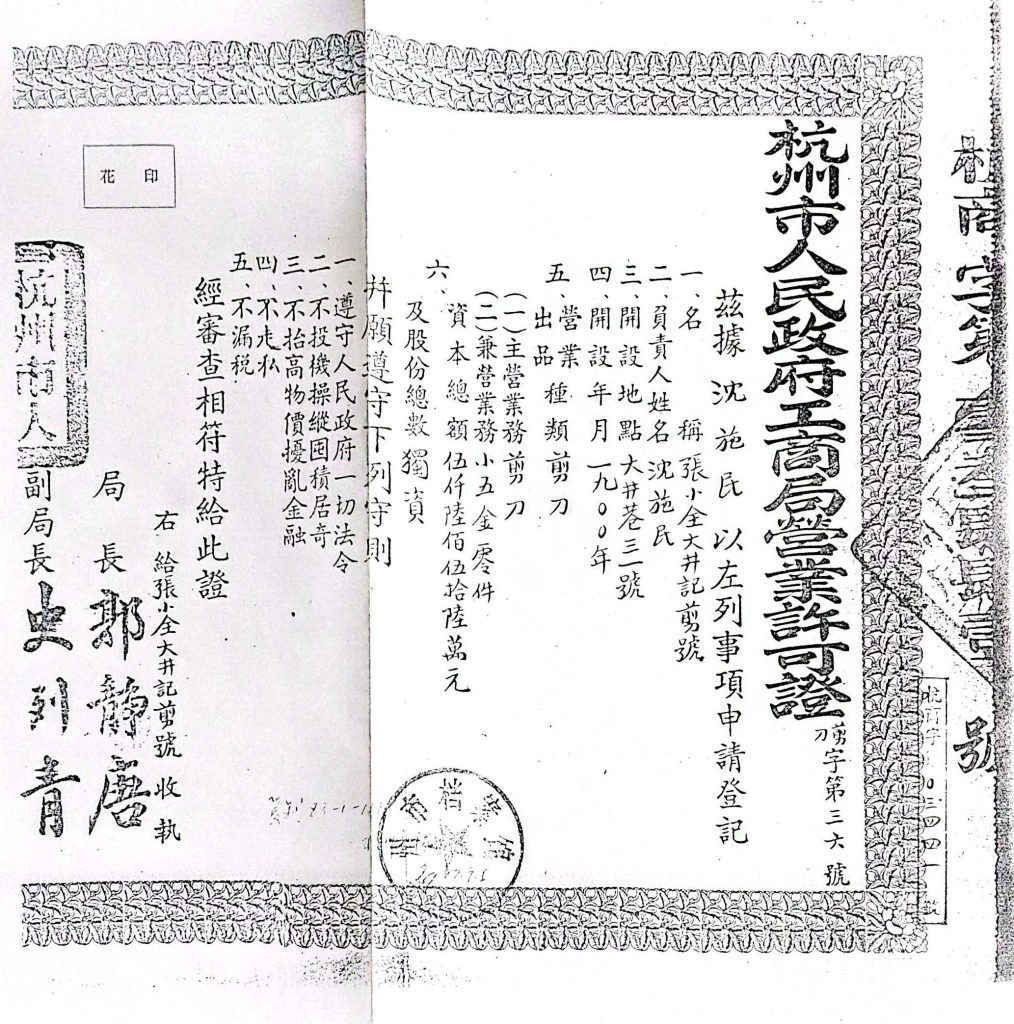 杭州市人民政府工商局營業許可證
剪刀字第三六號
茲據沈施民以左列事項申請登記
一、名稱張小全大井記剪號
二、負責人姓名沈施民
三、開設地點大井巷三一號
四、開設年月一九〇〇年
五、營業種類剪刀
出品
(一)主營業務剪刀
(二)兼營業務小五金零件
六、資本總額伍仟陸佰伍拾陸萬元
及股份總數獨資
并願遵守下列守則
一、遵守人民政府一切法令
二、不投機操縱囤積居奇
三、不抬高物價擾亂金融
四、不走私
五、不漏税
經審查相符特給此證
右給張小全大井記剪號收執
局長郭靜唐
副局長史列青
印花
杭州市人
杭商字第
號